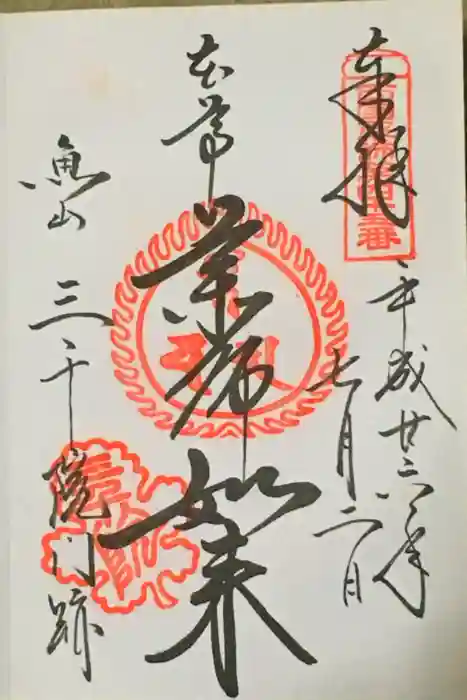 奉拝
平成廿六年
七月二日
本尊
薬師如来
魚山
三千院門跡